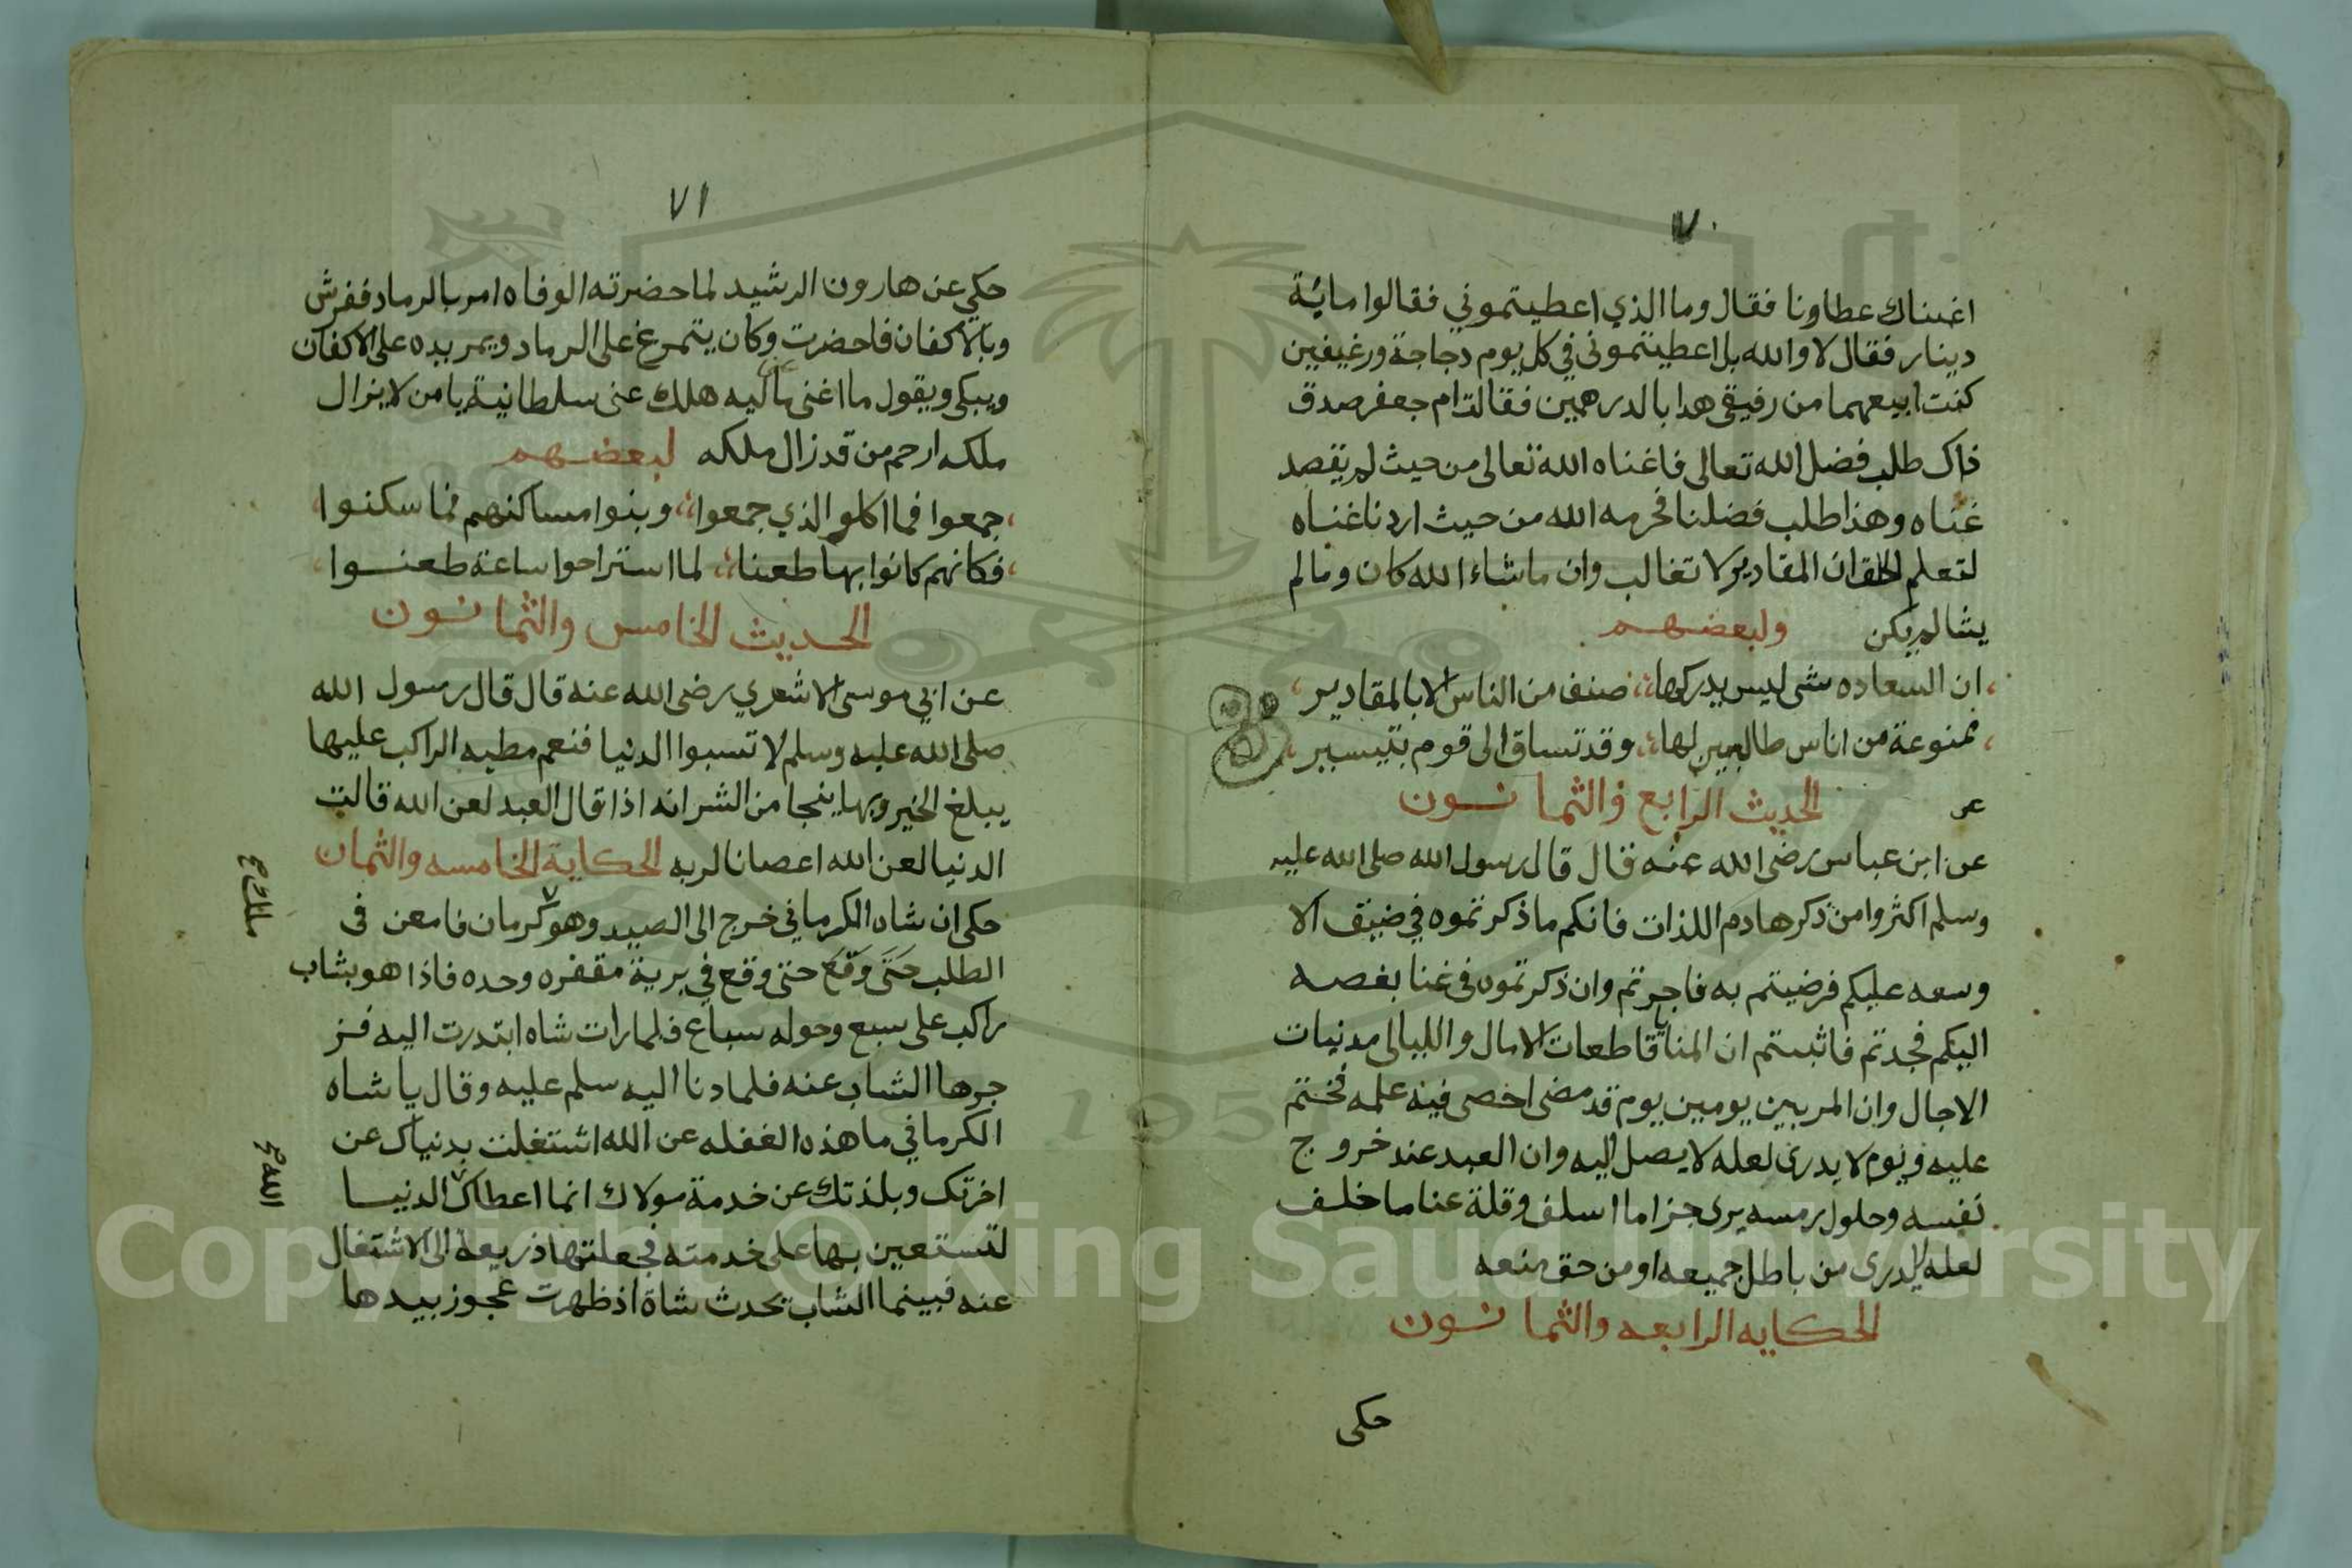 ٧٠
اغنناك عطاونا فقال وما الذي اعطيتموني فقالوا مائة
دينار فقال لا والله بل اعطيتموني في كل يوم دجاجة ورغيفين
كنت ابيعهما من رفيقي هدا بالدرهمين فقالت ام جعفر صدق
ذاك طلب فضل الله تعالى فاغناه الله تعالى من حيث لم يقصد
غناه وهذا طلب فضلنا فحرمه الله من حيث اردنا غناه
لتعلم الخلق ان المقادير لا تغالب وان ما شاء الله كان وما لم
يشا لم يكن ولبعضهم
ان السعاده شى ليس يدركها صنف من الناس الا بالمقادير
ممنوعة من اناس طالبين لها وقد تساق الى قوم بتيسير
عن الحديث الرابع والثمانون
عن ابن عباس رضى الله عنه قال قال رسول الله صلى الله عليه
وسلم اكثروا من ذكر هادم اللذات فانكم ما ذكرتموه في ضيق الا
وسعه عليكم فرضيتم به فاجرتم وان ذكرتموه في غنا بغصه
اليكم فجدتم فاثبتم ان المنايا قاطعات الامال والليالى مدنيات
الاجال وان المر بين يومين يوم قد مضى احصى فيه علمه فختم
عليه ويوم لا يدرى لعله لا يصل اليه وان العبد عند خروج
نفسه وحلول رمسه يرى جزا ما اسلف وقلة عنا ما خلف
لعله لا يدرى من باطل جميعه او من حق منعه
الحكايه الرابعه والثمانون
حكى
٧١
حكي عن هارون الرشيد لما حضرته الوفاه امر بالرماد ففرش
وبالاكفان فاحضرت وكان يتمرغ على الرماد ويمر يده على الاكفان
ويبكى ويقول ما اغنى عنى ماليه هلك عنى سلطانية يا من لا يزال
ملكه ارحم من قد زال ملكه لبعضهم
جمعوا فما اكلوا الذي جمعوا وبنوا مساكنهم فما سكنوا
فكانهم كانوا بها طعنا لما استراحوا ساعة طعنوا
الحديث الخامس والثمانون
عن ابي موسى الاشعري رضى الله عنه قال قال رسول الله
صلى الله عليه وسلم لا تسبوا الدنيا فنعم مطيه الراكب عليها
يبلغ الخير وبها ينجا من الشر انه اذا قال العبد لعن الله قالت
الدنيا لعن الله اعصانا لربه الحكاية الخامسه والثمان
حكى ان شاه الكرماني خرج الى الصيد وهو كرمان فامعن في
ملك ح
الطلب حتى وقع حتى وقع في برية مقفره وحده فاذا هو بشاب
راكب على سبع وحوله سباع فلما رات شاه ابتدرت اليه فز
جرها الشاب عنه فلما دنا اليه سلم عليه وقال يا شاه
الكرماني ما هذه الغفله عن الله اشتغلت بدنياك عن
اخرتك وبلذتك عن خدمة مولاك انما اعطاك الدنيا
الله ح
لتستعين بها على خدمته فجعلتها ذريعة الى الاشتغال
عنه فبينما الشاب يحدث شاة اذ ظهرت عجوز بيدها
Copyright © King Saud University
1957